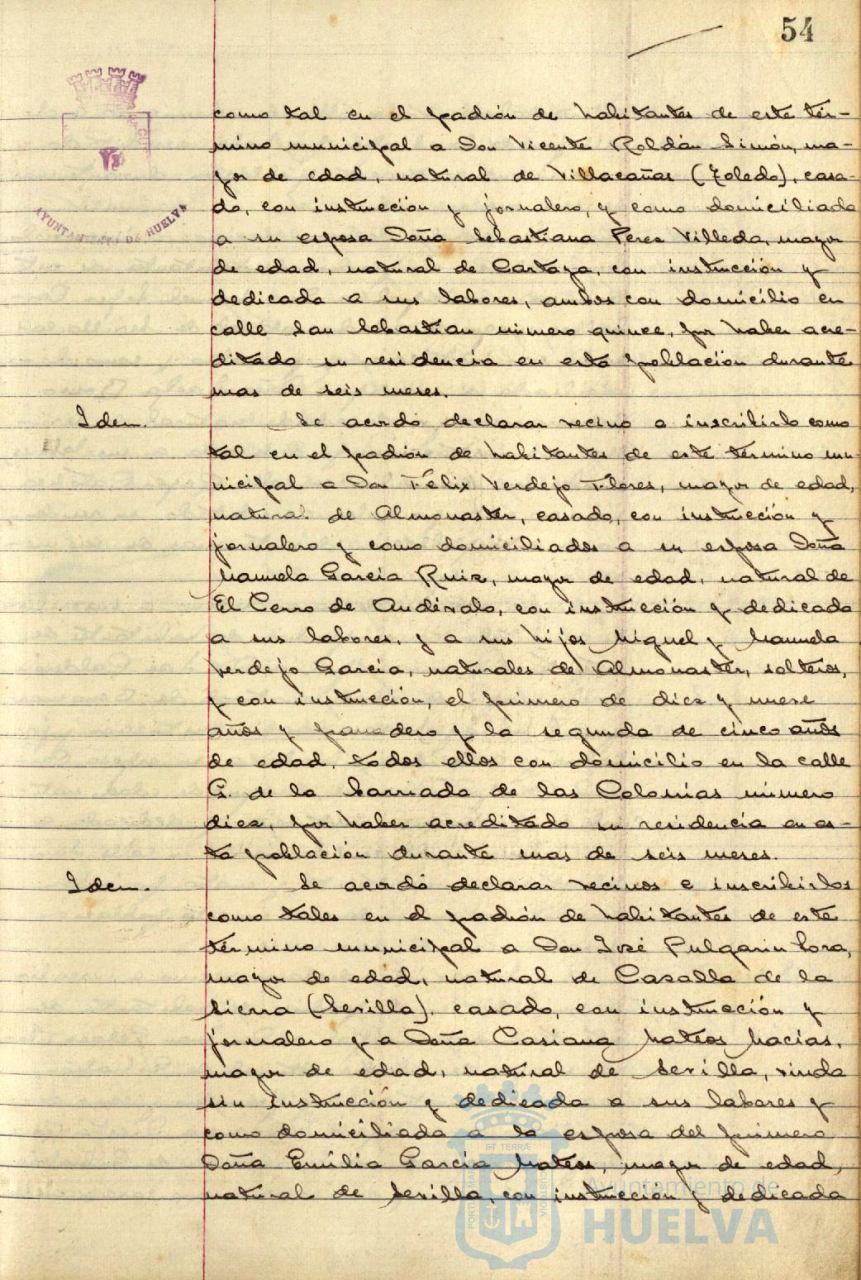 54
AYUNTAMIENTO DE HUELVA
como tal en el padrón de habitantes de este tér-
mino municipal a Don Vicente Roldán Simón, ma-
yor de edad, natural de Villacañas (Toledo), casa-
do, con instrucción y jornalero, y como domiciliada
a su esposa Doña Sebastiana Perez Villeda, mayor
de edad, natural de Cartaya, con instrucción y
dedicada a sus labores, ambos con domicilio en
calle San Sebastian número quince, por haber acre-
ditado su residencia en esta población durante
mas de seis meses.
Idem. Se acordó declarar vecino a inscribirlo como
tal en el padrón de habitantes de este término mu-
nicipal a Don Félix Verdejo Flores, mayor de edad,
natural de Almonaster, casado, con instrucción y
jornalero y como domiciliados a su esposa Doña
Manuela García Ruiz, mayor de edad, natural de
El Cerro de Andévalo, con instrucción y dedicada
a sus labores, y a sus hijos Miguel y Manuela
Verdejo García, naturales de Almonaster, solteros,
y con instrucción, el primero de diez y nueve
años y panadero y la segunda de cinco años
de edad, todos ellos con domicilio en la calle
G. de la barriada de las Colonias número
diez, por haber acreditado su residencia en es-
ta población durante mas de seis meses.
Idem. Se acordó declarar vecinos e inscribirlos
como tales en el padrón de habitantes de este
término municipal a Don José Pulgarin Lora,
mayor de edad, natural de Cazalla de la
Sierra (Sevilla), casado, con instrucción y
jornalero y a Doña Casiana Mateos Macías,
mayor de edad, natural de Sevilla, viuda
sin instrucción y dedicada a sus labores y
como domiciliada a la esposa del primero
Doña Emilia García Mateos, mayor de edad,
natural de Sevilla, con instrucción y dedicada
Ayuntamiento de
HUELVA